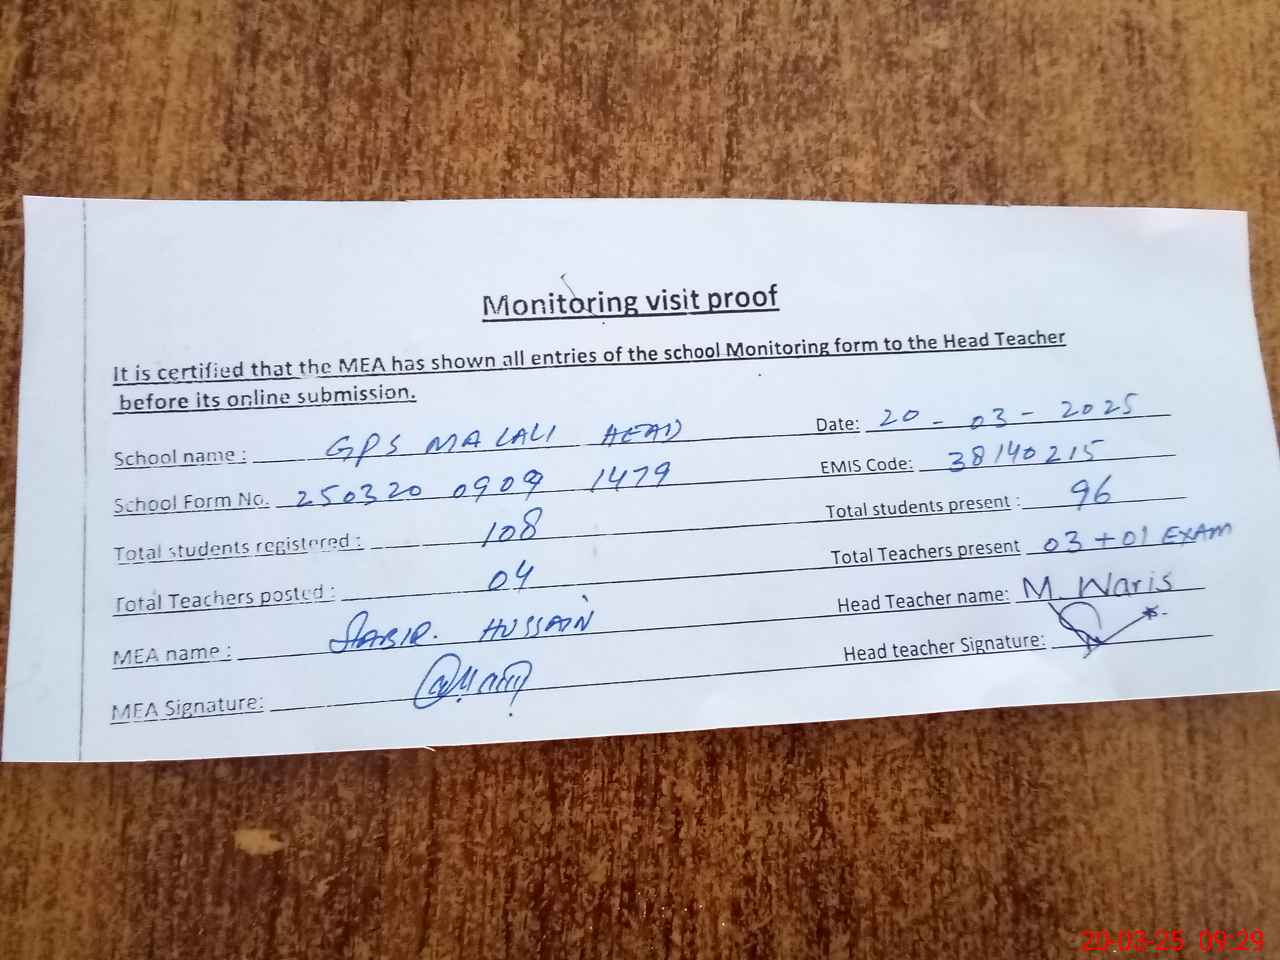 Monitoring visit proof
It is certified that the MEA has shown all entries of the school Monitoring form to the Head Teacher
before its online submission.
School name : GPS MALALI HEAD Date: 20-03-2025
School Form No. 250320 0909 1479 EMIS Code: 38140215
Total students registered : 108 Total students present : 96
Total Teachers posted : 04 Total Teachers present 03+01 EXAM
MEA name : HUSSAIN Head Teacher name: M. Waris
MEA Signature: Head teacher Signature:
20-03-25 09:29